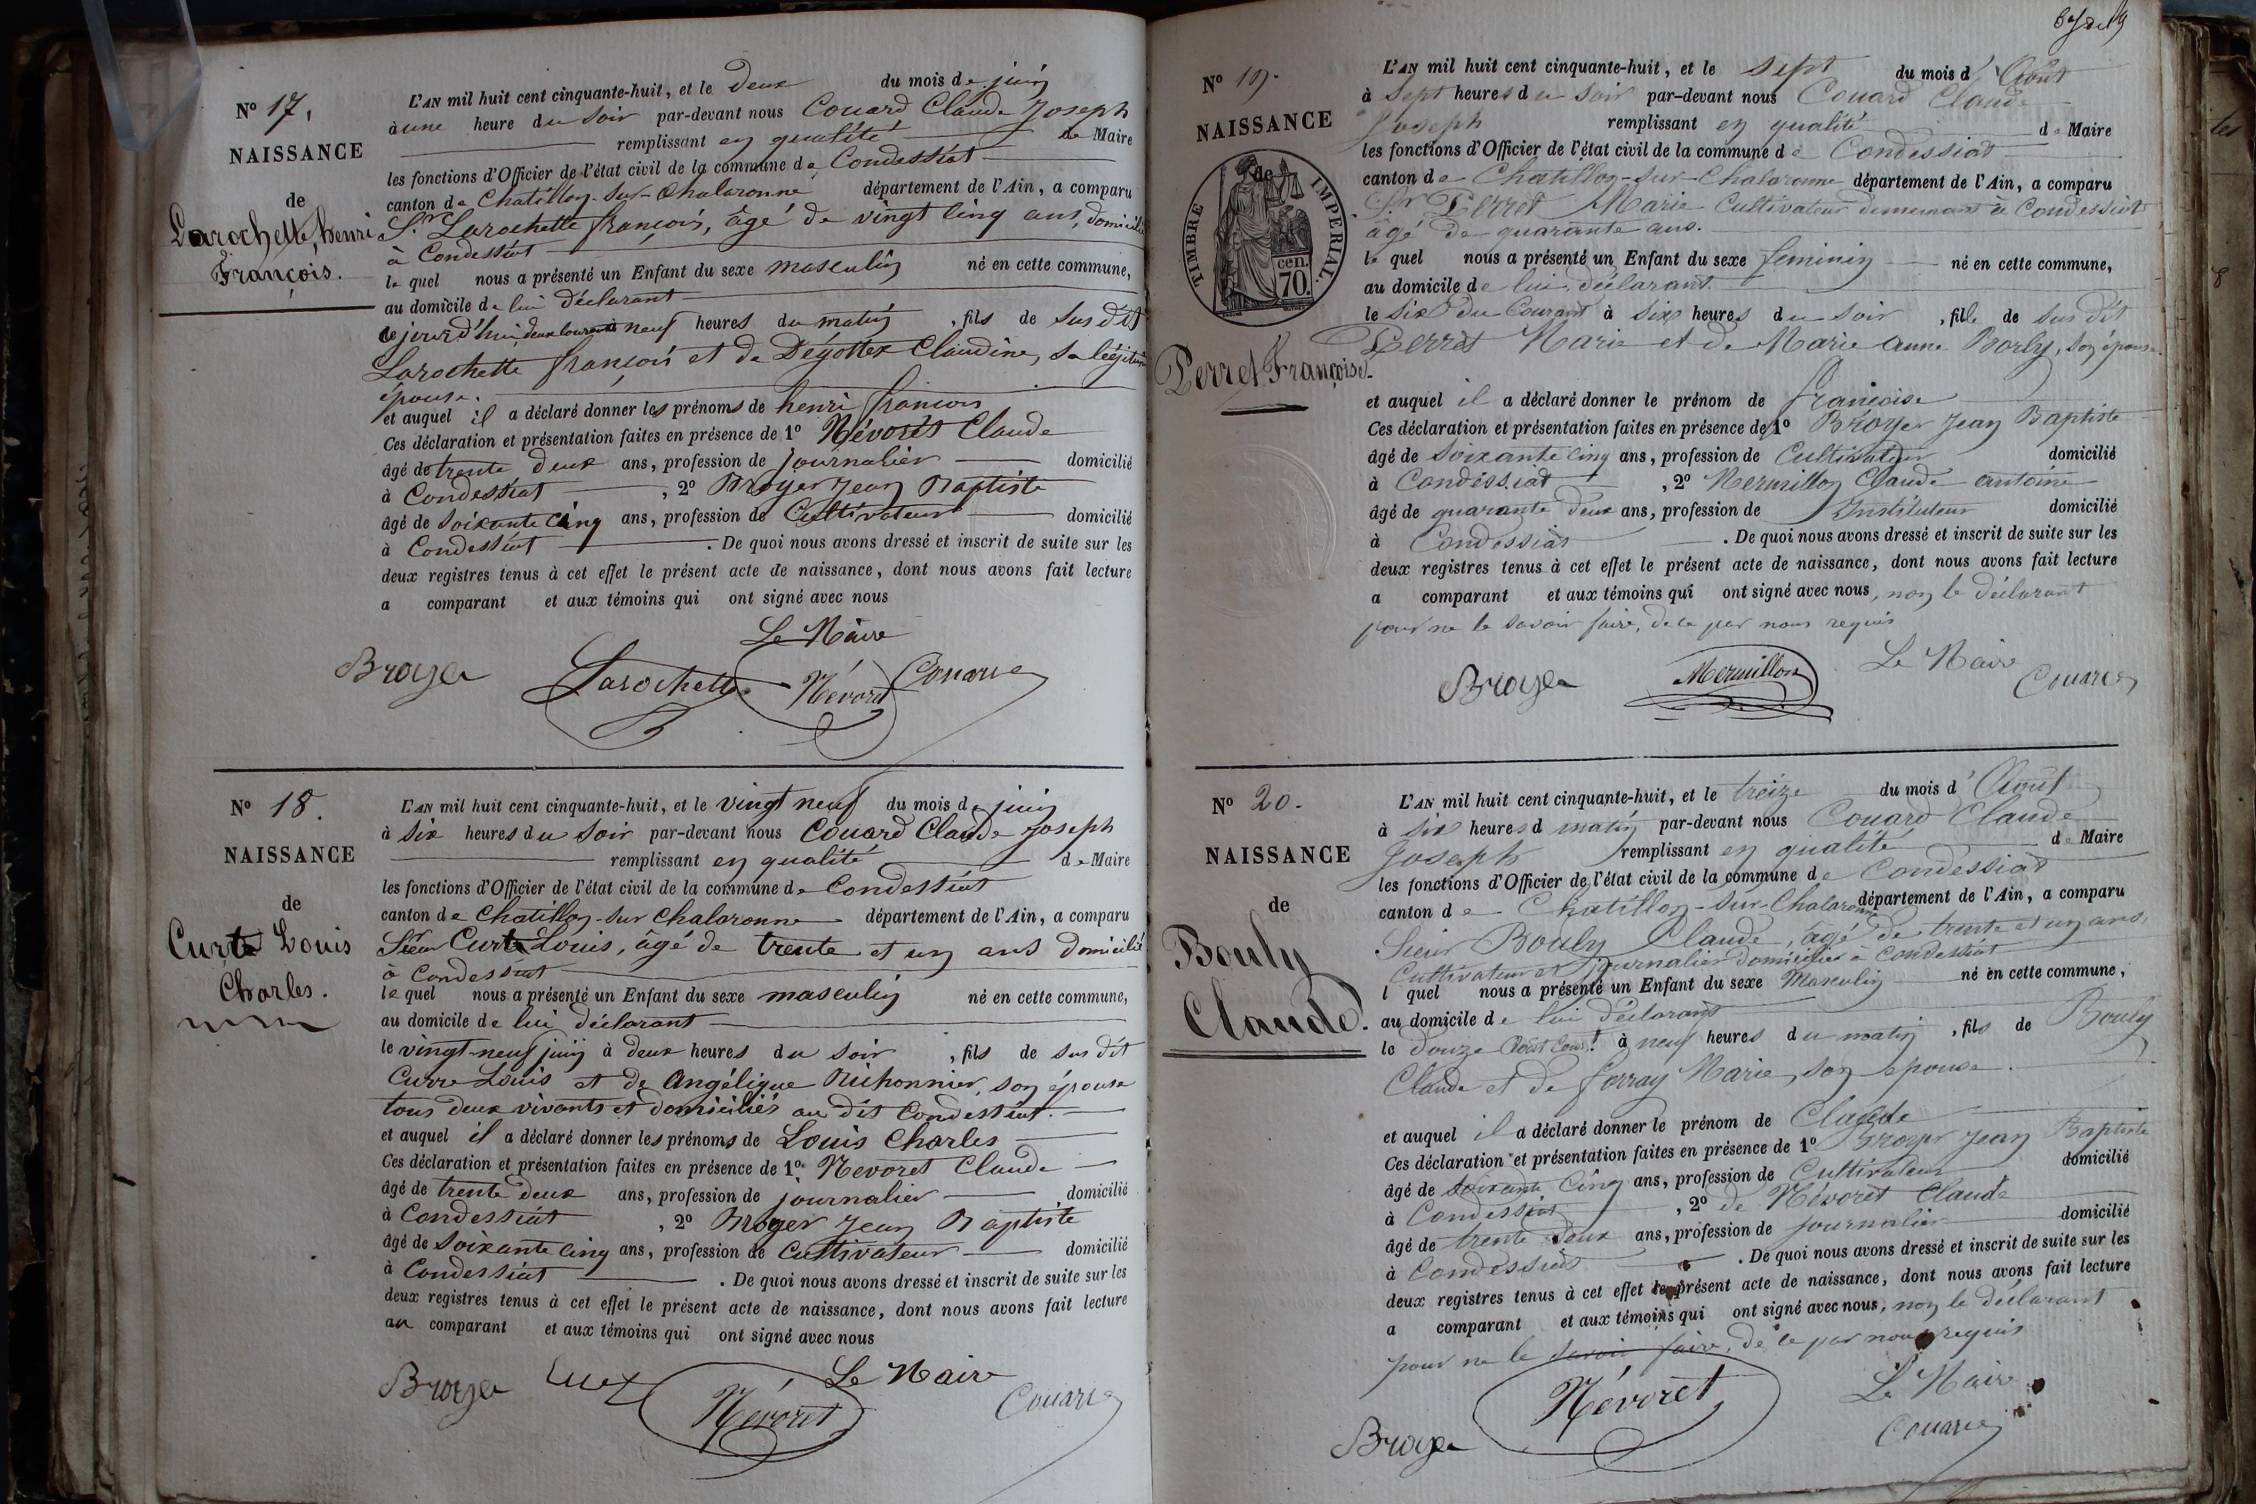 N° 17,
NAISSANCE
de
Larochette, henri
François.
L'AN mil huit cent cinquante-huit, et le deux du mois de juin
à une heure du soir par-devant nous Couard Claude Joseph
remplissant en qualité de Maire
les fonctions d'Officier de l'état civil de la commune de Condessiat
canton de Chatillon-sur-Chalaronne département de l'Ain, a comparu
Sr. Larochette françois, âgé de vingt cinq ans, domicilié
à Condessiat
le quel nous a présenté un Enfant du sexe masculin né en cette commune,
au domicile de lui déclarant
ce jourd'hui deux courant à neuf heures du matin, fils de sus dit
Larochette françois et de Dégottex Claudine, sa légitime
épouse.
et auquel il a déclaré donner les prénoms de henri françois
Ces déclaration et présentation faites en présence de 1° Névoret Claude
âgé de trente deux ans, profession de journalier domicilié
à Condessiat, 2° Broyer Jean Baptiste
âgé de soixante cinq ans, profession de Cultivateur domicilié
à Condessiat. De quoi nous avons dressé et inscrit de suite sur les
deux registres tenus à cet effet le présent acte de naissance, dont nous avons fait lecture
a comparant et aux témoins qui ont signé avec nous
Le Maire
Broyer Larochette Névoret Couard
N° 18.
NAISSANCE
de
Curt Louis
Charles.
L'AN mil huit cent cinquante-huit, et le vingt neuf du mois de juin
à six heures du soir par-devant nous Couard Claude Joseph
remplissant en qualité de Maire
les fonctions d'Officier de l'état civil de la commune de Condessiat
canton de Chatillon-sur Chalaronne département de l'Ain, a comparu
Sieur Curt Louis, âgé de trente et un ans domicilié
à Condessiat
le quel nous a présenté un Enfant du sexe masculin né en cette commune,
au domicile de lui déclarant
le vingt-neuf juin à deux heures du soir, fils de sus dit
Louis et de Angélique son épouse
tous deux vivants et domiciliés au dit Condessiat.
et auquel il a déclaré donner les prénoms de Louis Charles
Ces déclaration et présentation faites en présence de 1° Nevoret Claude
âgé de trente deux ans, profession de journalier domicilié
à Condessiat, 2° Broyer Jean Baptiste
âgé de soixante cinq ans, profession de Cultivateur domicilié
à Condessiat. De quoi nous avons dressé et inscrit de suite sur les
deux registres tenus à cet effet le présent acte de naissance, dont nous avons fait lecture
au comparant et aux témoins qui ont signé avec nous
Le Maire
Broyer Névoret Couard
N° 19.
NAISSANCE
de
TIMBRE IMPERIAL.
70.
cen.
Perret Françoise.
L'AN mil huit cent cinquante-huit, et le sept du mois d'Août
à sept heures du soir par-devant nous Couard Claude
Joseph remplissant en qualité de Maire
les fonctions d'Officier de l'état civil de la commune de Condessiat
canton de Chatillon-sur-Chalaronne département de l'Ain, a comparu
Sr Perret Marie Cultivateur demeurant à Condessiat
âgé de quarante ans.
le quel nous a présenté un Enfant du sexe feminin né en cette commune,
au domicile de lui déclarant
le six du Courant à six heures du soir, fille de sus dit
Perret Marie et de Marie Anne Borly, son épouse
et auquel il a déclaré donner le prénom de françoise
Ces déclaration et présentation faites en présence de 1° Broyer Jean Baptiste
âgé de soixante cinq ans, profession de Cultivateur domicilié
à Condessiat, 2° Mermillon Claude antoine
âgé de quarante deux ans, profession de Instituteur domicilié
à Condessiat. De quoi nous avons dressé et inscrit de suite sur les
deux registres tenus à cet effet le présent acte de naissance, dont nous avons fait lecture
a comparant et aux témoins qui ont signé avec nous, non le déclarant
pour ne le savoir faire, de ce par nous requis
Le Maire
Broyer Mermillon Couard
N° 20.
NAISSANCE
de
Bouly
Claude.
L'AN mil huit cent cinquante-huit, et le treize du mois d'Août
à six heures d matin par-devant nous Couard Claude
Joseph remplissant en qualité de Maire
les fonctions d'Officier de l'état civil de la commune de Condessiat
canton de Chatillon-sur-Chalaronne département de l'Ain, a comparu
Sieur Bouly Claude, âgé de trente et un ans,
Cultivateur et journalier domicilié à Condessiat
l quel nous a présenté un Enfant du sexe Masculin né en cette commune,
au domicile de lui déclarant
le douze Août à neuf heures du matin, fils de Bouly
Claude et de Forray Marie, son épouse.
et auquel il a déclaré donner le prénom de Claude
Ces déclaration et présentation faites en présence de 1° Broyer Jean Baptiste
âgé de soixante cinq ans, profession de Cultivateur domicilié
à Condessiat, 2° de Névoret Claude
âgé de trente deux ans, profession de journalier domicilié
à Condessiat. De quoi nous avons dressé et inscrit de suite sur les
deux registres tenus à cet effet le présent acte de naissance, dont nous avons fait lecture
a comparant et aux témoins qui ont signé avec nous, non le déclarant
pour ne le savoir faire, de ce par nous requis
Le Maire
Broyer Névoret Couard